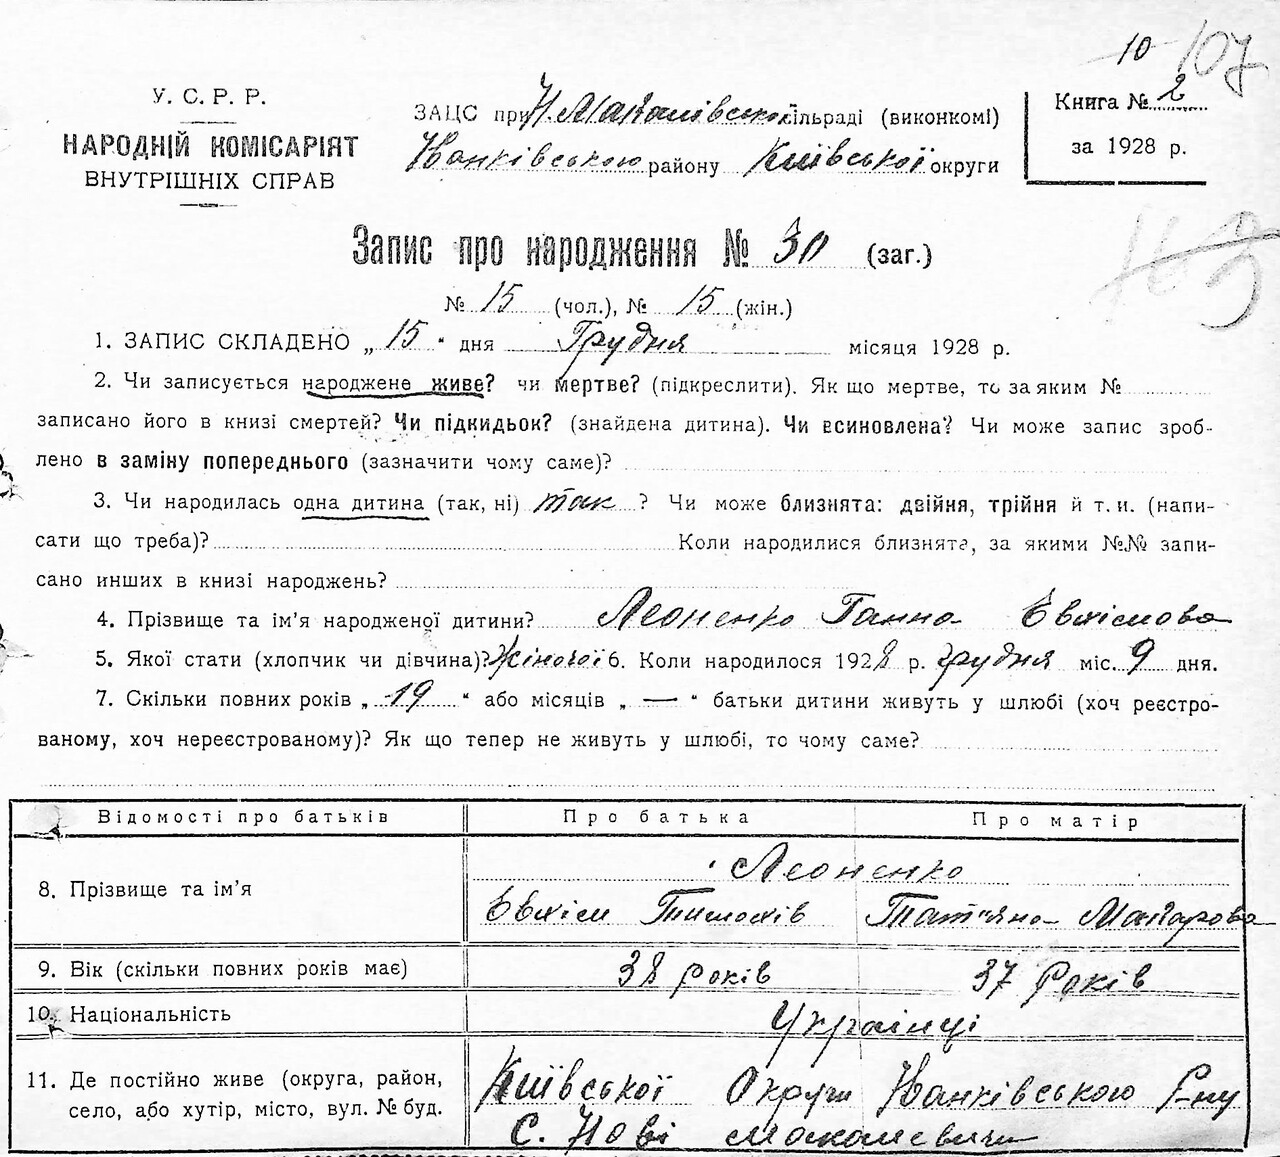 10 107
У. С. Р. Р.
НАРОДНІЙ КОМІСАРІЯТ
ВНУТРІШНІХ СПРАВ
ЗАЦС при Н. Макалівської сільраді (виконкомі)
Іванківського району Київської округи
Книга № 2
за 1928 р.
Запис про народження № 30 (заг.)
№ 15 (чол.), № 15 (жін.)
1. ЗАПИС СКЛАДЕНО „ 15 “ дня Грудня місяця 1928 р.
2. Чи записується народжене живе? чи мертве? (підкреслити). Як що мертве, то за яким №
записано його в книзі смертей? Чи підкидьок? (знайдена дитина). Чи всиновлена? Чи може запис зроб-
лено в заміну попереднього (зазначити чому саме)?
3. Чи народилась одна дитина (так, ні) так ? Чи може близнята: двійня, трійня й т. и. (напи-
сати що треба)? Коли народилися близнята, за якими №№ запи-
сано инших в книзі народжень?
4. Прізвище та ім’я народженої дитини? Леоненко Ганна Евхімова
5. Якої стати (хлопчик чи дівчина)? Жіночої 6. Коли народилося 1928 р. грудня міс. 9 дня.
7. Скільки повних років „ 19 “ або місяців „ — “ батьки дитини живуть у шлюбі (хоч реєстро-
ваному, хоч нереєстрованому)? Як що тепер не живуть у шлюбі, то чому саме?
Відомості про батьків Про батька Про матір
8. Прізвище та ім’я Леоненко
Евхім Тимохів Тат'яна Макарова
9. Вік (скільки повних років має) 38 років 37 років
10. Національність Українці
11. Де постійно живе (округа, район,
село, або хутір, місто, вул. № буд.
Київської Округи Іванківського Р-ну
С. Нові Макалевичи